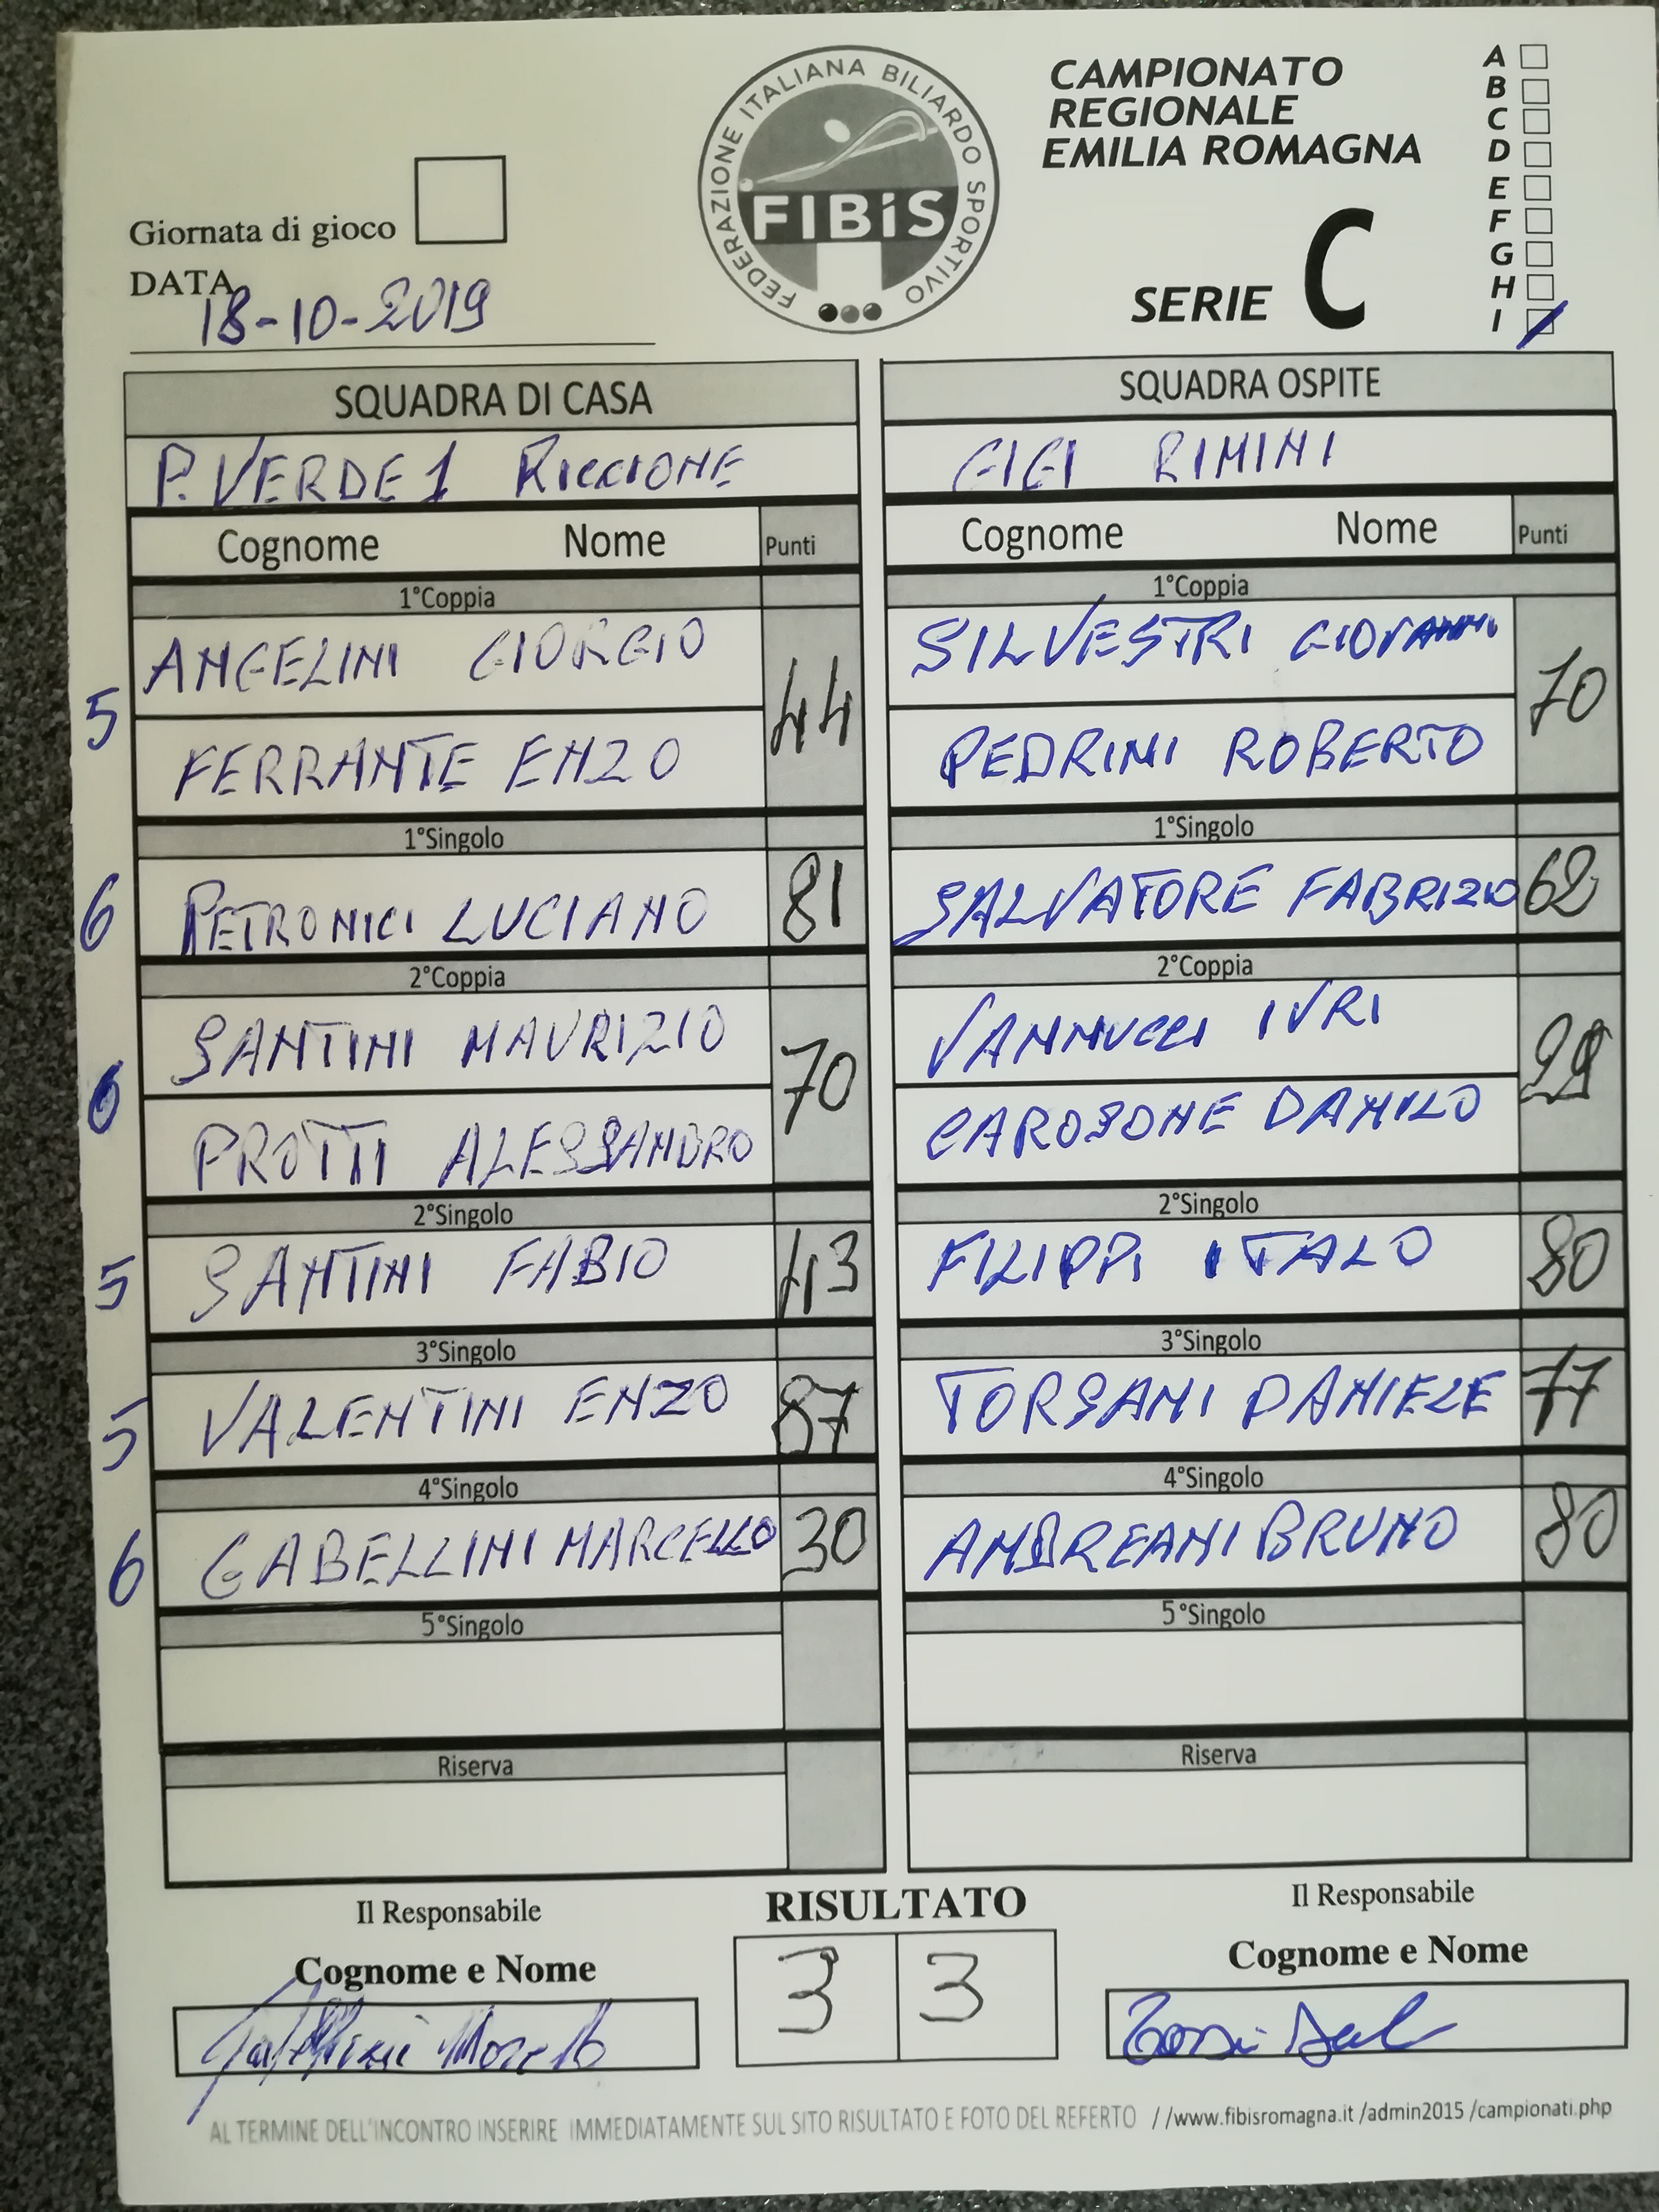 FEDERAZIONE ITALIANA BILIARDO SPORTIVO
FIBiS
CAMPIONATO
REGIONALE
EMILIA ROMAGNA
SERIE C
A
B
C
D
E
F
G
H
I
Giornata di gioco
DATA
18-10-2019
SQUADRA DI CASA SQUADRA OSPITE
P. VERDE 1 RICCIONE GIGI RIMINI
Cognome Nome Punti Cognome Nome Punti
1°Coppia 1°Coppia
ANGELINI GIORGIO SILVESTRI GIOVANNI
5 44 70
FERRANTE ENZO PEDRINI ROBERTO
1°Singolo 1°Singolo
6 PETRONICI LUCIANO 81 SALVATORE FABRIZIO 62
2°Coppia 2°Coppia
SANTINI MAURIZIO VANNUCCI IVRI
6 70
PROTTI ALESSANDRO CAROSONE DANILO
2°Singolo 2°Singolo
5 SANTINI FABIO 43 FILIPPI ITALO 80
3°Singolo 3°Singolo
5 VALENTINI ENZO 87 TORSANI DANIELE 77
4°Singolo 4°Singolo
6 GABELLINI MARCELLO 30 ANDREANI BRUNO 80
5°Singolo 5°Singolo
Riserva Riserva
Il Responsabile RISULTATO Il Responsabile
Cognome e Nome 3 3 Cognome e Nome
AL TERMINE DELL'INCONTRO INSERIRE IMMEDIATAMENTE SUL SITO RISULTATO E FOTO DEL REFERTO //www.fibisromagna.it /admin2015 /campionati.php